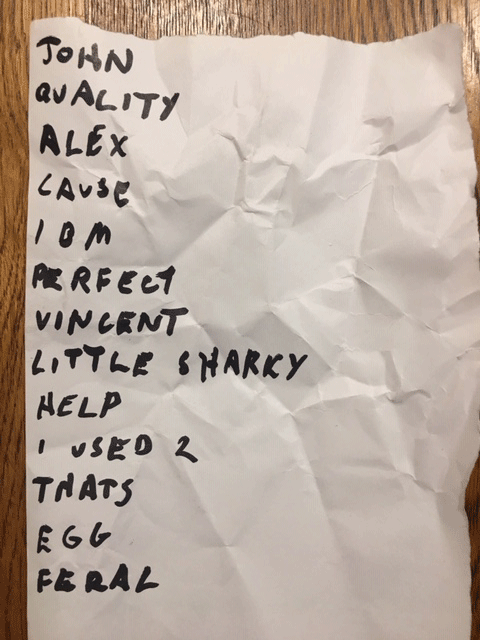 JOHN
QUALITY
ALEX
CAUSE
IDM
PERFECT
VINCENT
LITTLE SHARKY
HELP
I USED 2
THATS
EGG
FERAL